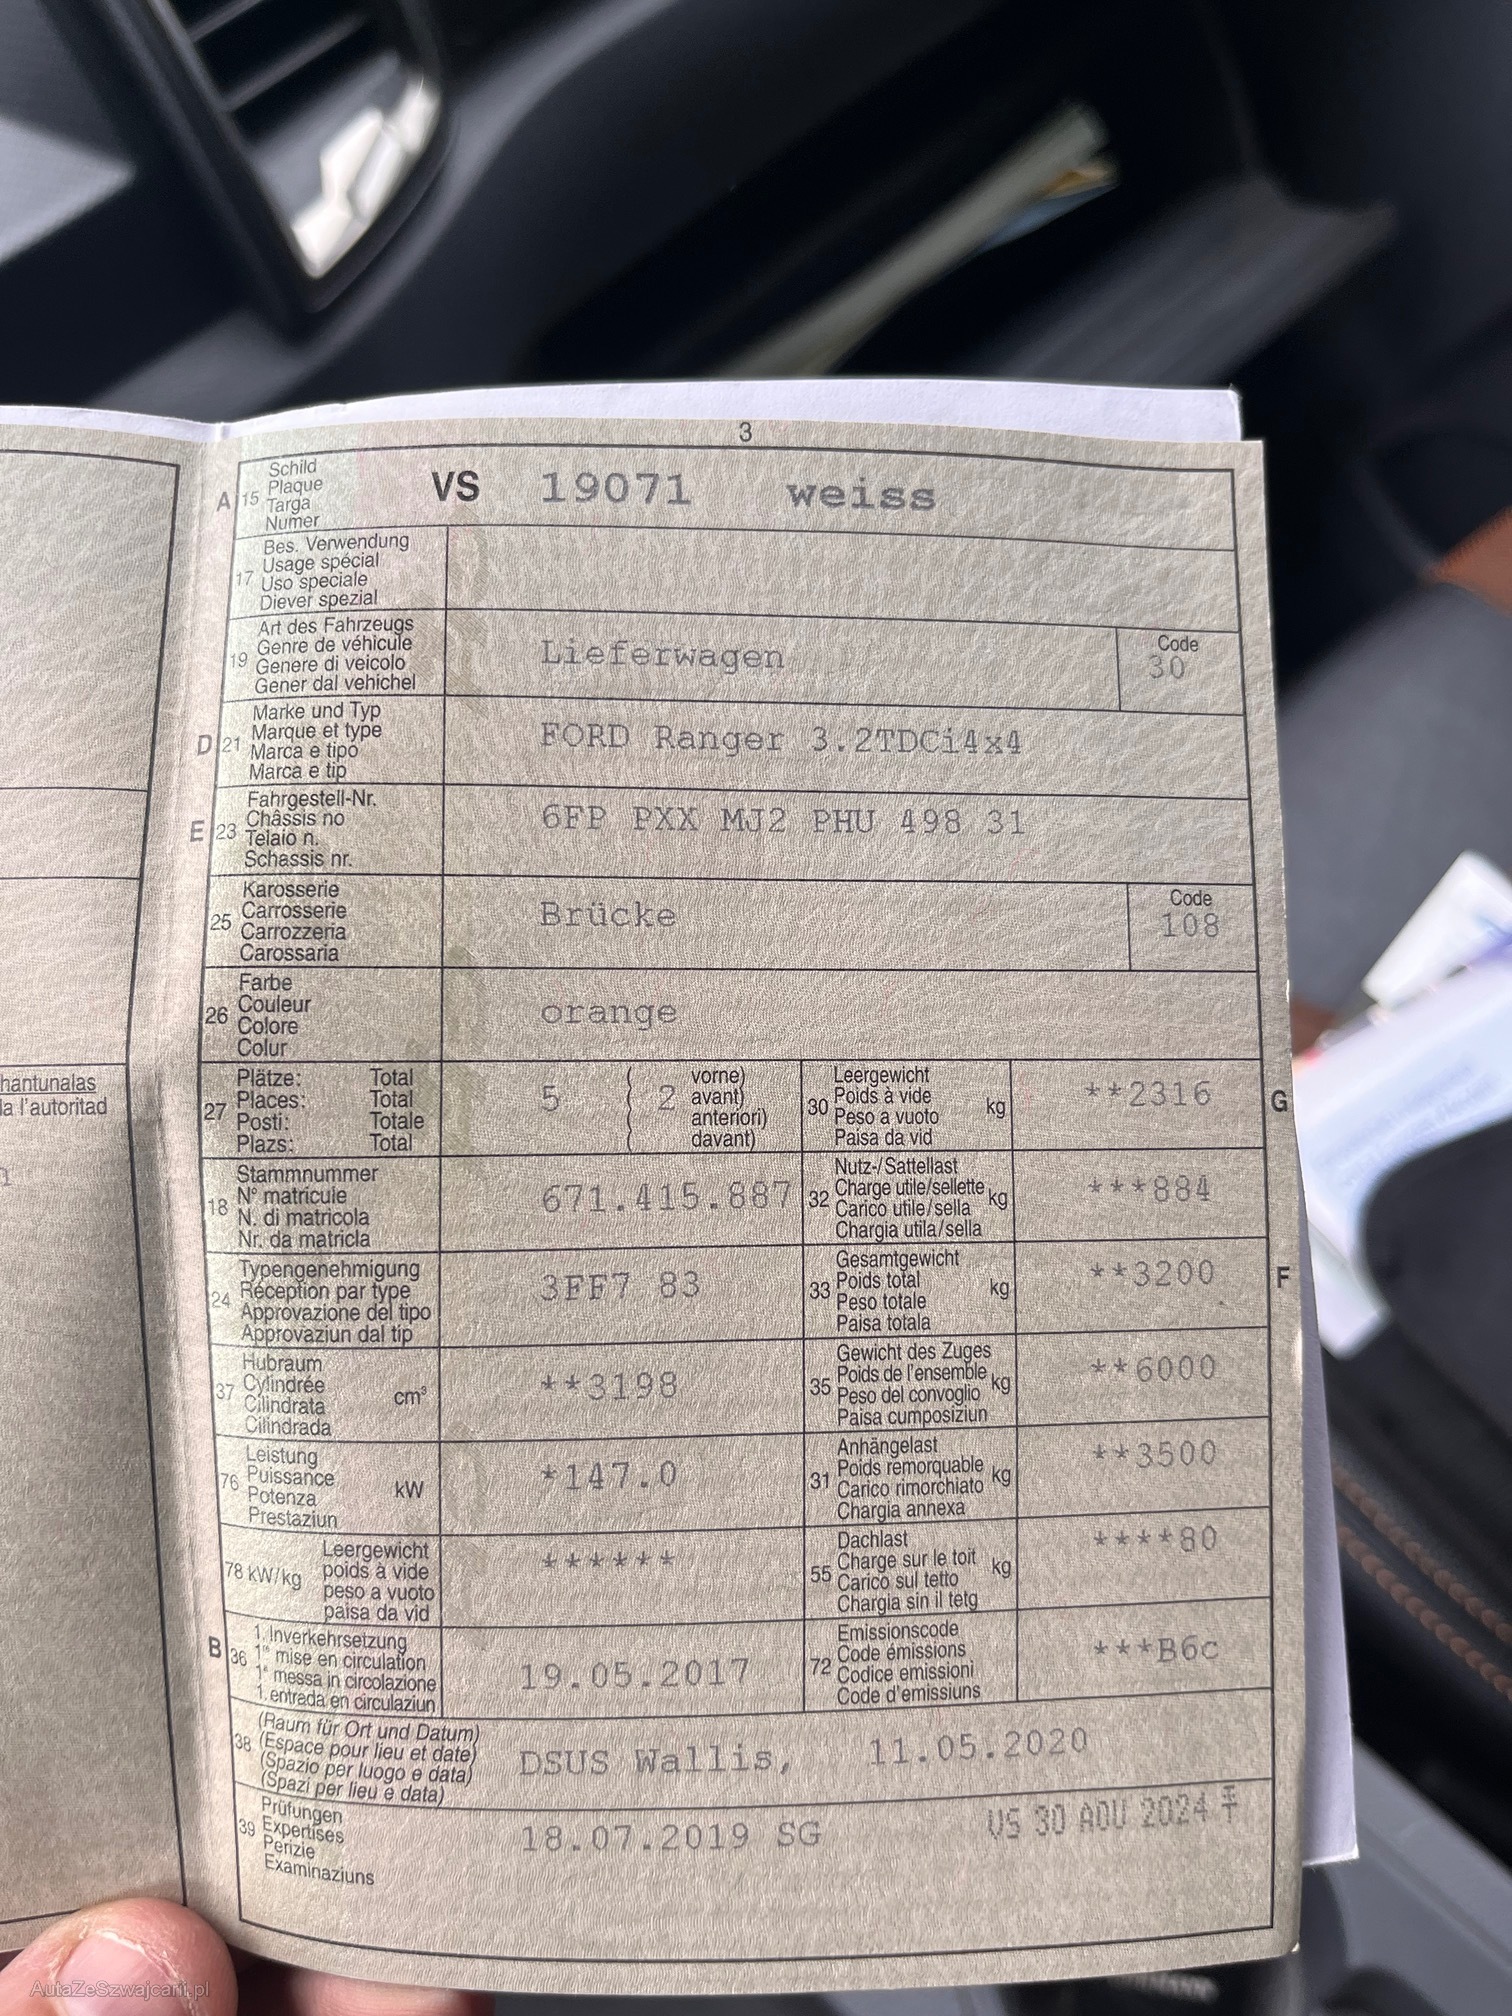 3
A 15 Schild
Plaque
Targa
Numer
VS 19071 weiss
17 Bes. Verwendung
Usage spécial
Uso speciale
Diever spezial
19 Art des Fahrzeugs
Genre de véhicule
Genere di veicolo
Gener dal vehichel
Lieferwagen
Code
30
D 21 Marke und Typ
Marque et type
Marca e tipo
Marca e tip
FORD Ranger 3.2TDCi4x4
E 23 Fahrgestell-Nr.
Châssis no
Telaio n.
Schassis nr.
6FP PXX MJ2 PHU 498 31
25 Karosserie
Carrosserie
Carrozzeria
Carossaria
Brücke
Code
108
26 Farbe
Couleur
Colore
Colur
orange
hantunalas
la l'autoritad
27 Plätze: Total
Places: Total
Posti: Totale
Plazs: Total
5 ( 2 vorne)
( avant)
( anteriori)
( davant)
30 Leergewicht
Poids à vide
Peso a vuoto
Paisa da vid
kg
**2316
G
18 Stammnummer
N° matricule
N. di matricola
Nr. da matricla
671.415.887
32 Nutz-/Sattellast
Charge utile/sellette
Carico utile/sella
Chargia utila/sella
kg
***884
24 Typengenehmigung
Réception par type
Approvazione del tipo
Approvaziun dal tip
3FF7 83
33 Gesamtgewicht
Poids total
Peso totale
Paisa totala
kg
**3200
F
37 Hubraum
Cylindrée
Cilindrata
Cilindrada
cm³
**3198
35 Gewicht des Zuges
Poids de l'ensemble
Peso del convoglio
Paisa cumposiziun
kg
**6000
76 Leistung
Puissance
Potenza
Prestaziun
kW
*147.0
31 Anhängelast
Poids remorquable
Carico rimorchiato
Chargia annexa
kg
**3500
78 kW/kg Leergewicht
poids à vide
peso a vuoto
paisa da vid
******
55 Dachlast
Charge sur le toit
Carico sul tetto
Chargia sin il tetg
kg
****80
B 36 1. Inverkehrsetzung
1re mise en circulation
1a messa in circolazione
1. entreda en circulaziun
19.05.2017
72 Emissionscode
Code émissions
Codice emissioni
Code d'emissiuns
***B6c
38 (Raum für Ort und Datum)
(Espace pour lieu et date)
(Spazio per luogo e data)
(Spazi per lieu e data)
DSUS Wallis, 11.05.2020
39 Prüfungen
Expertises
Perizie
Examinaziuns
18.07.2019 SG
VS 30 AOU 2024
AutaZeSzwajcarii.pl